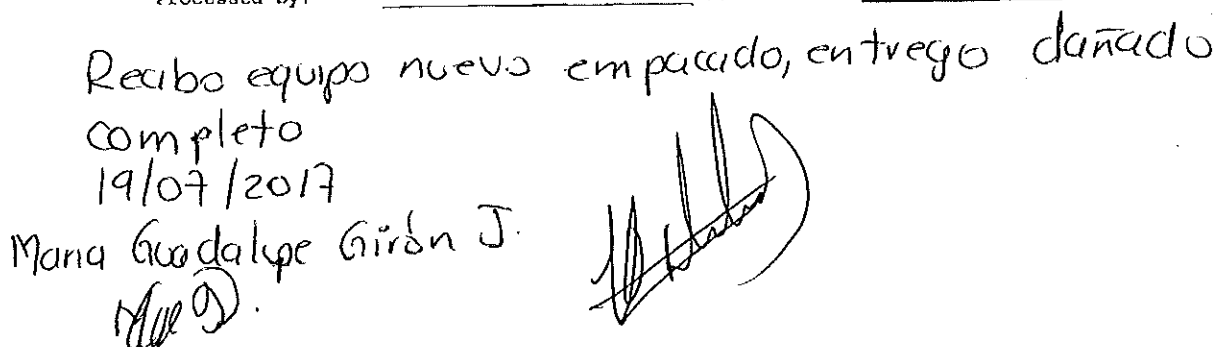 Processed by:
Recibo equipo nuevo empacado, entrego dañado
completo
19/07/2017
Maria Guadalupe Girón J.